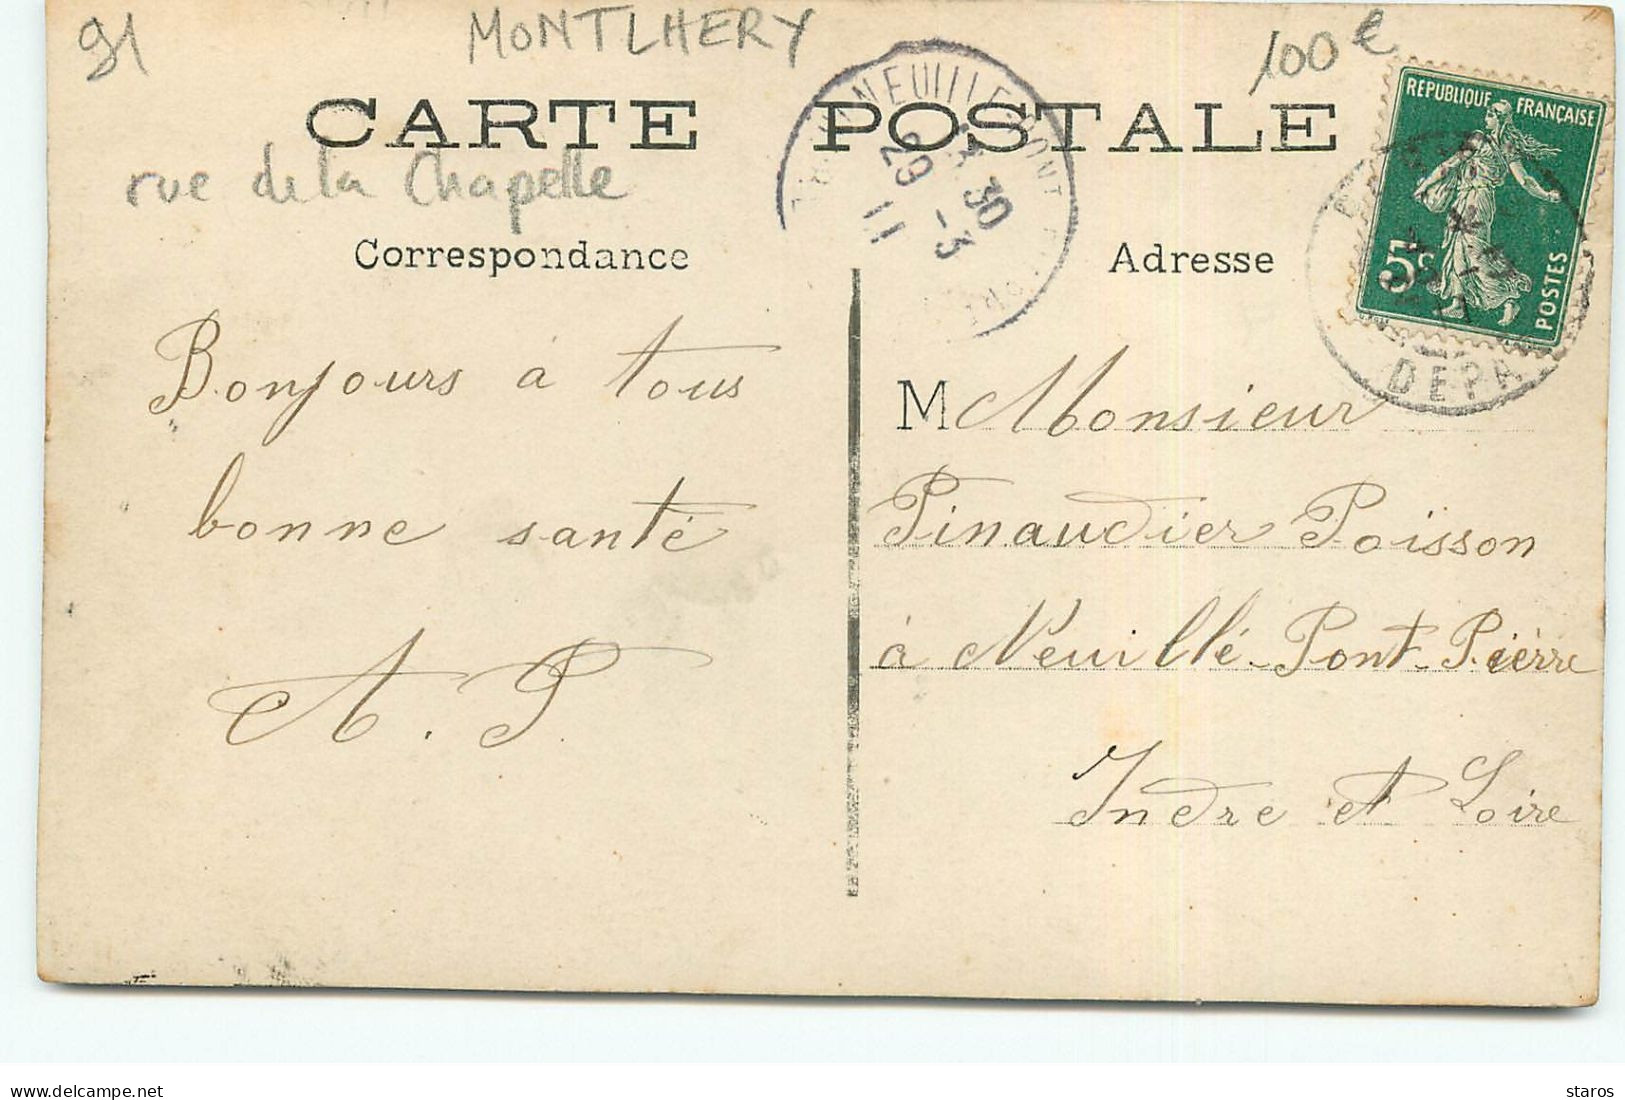 91
MONTLHERY
100 €
CARTE POSTALE
rue de la Chapelle
NEUILLE-PONT
30
29 -3
11
REPUBLIQUE FRANÇAISE
5c
POSTES
DEPA
Correspondance
Adresse
Bonjours à tous
bonne santé
A. P.
M Monsieur
Pinaudier Poïsson
à Neuillé-Pont-Pièrre
Indre et Loire
delcampe.net
staros